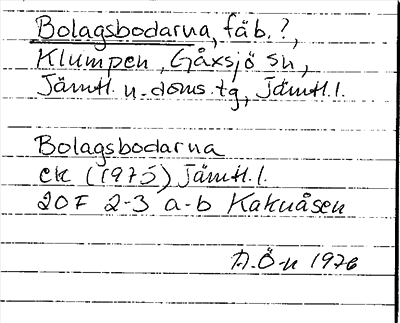 Bolagsbodarna, fäb.?,
Klumpen, Gåxsjö sn,
Jämtl. n. doms. tg, Jämtl. l.
Bolagsbodarna
ek (1975) Jämtl. l.
20F 2-3 a-b Kakuåsen
A.Ö-n 1976